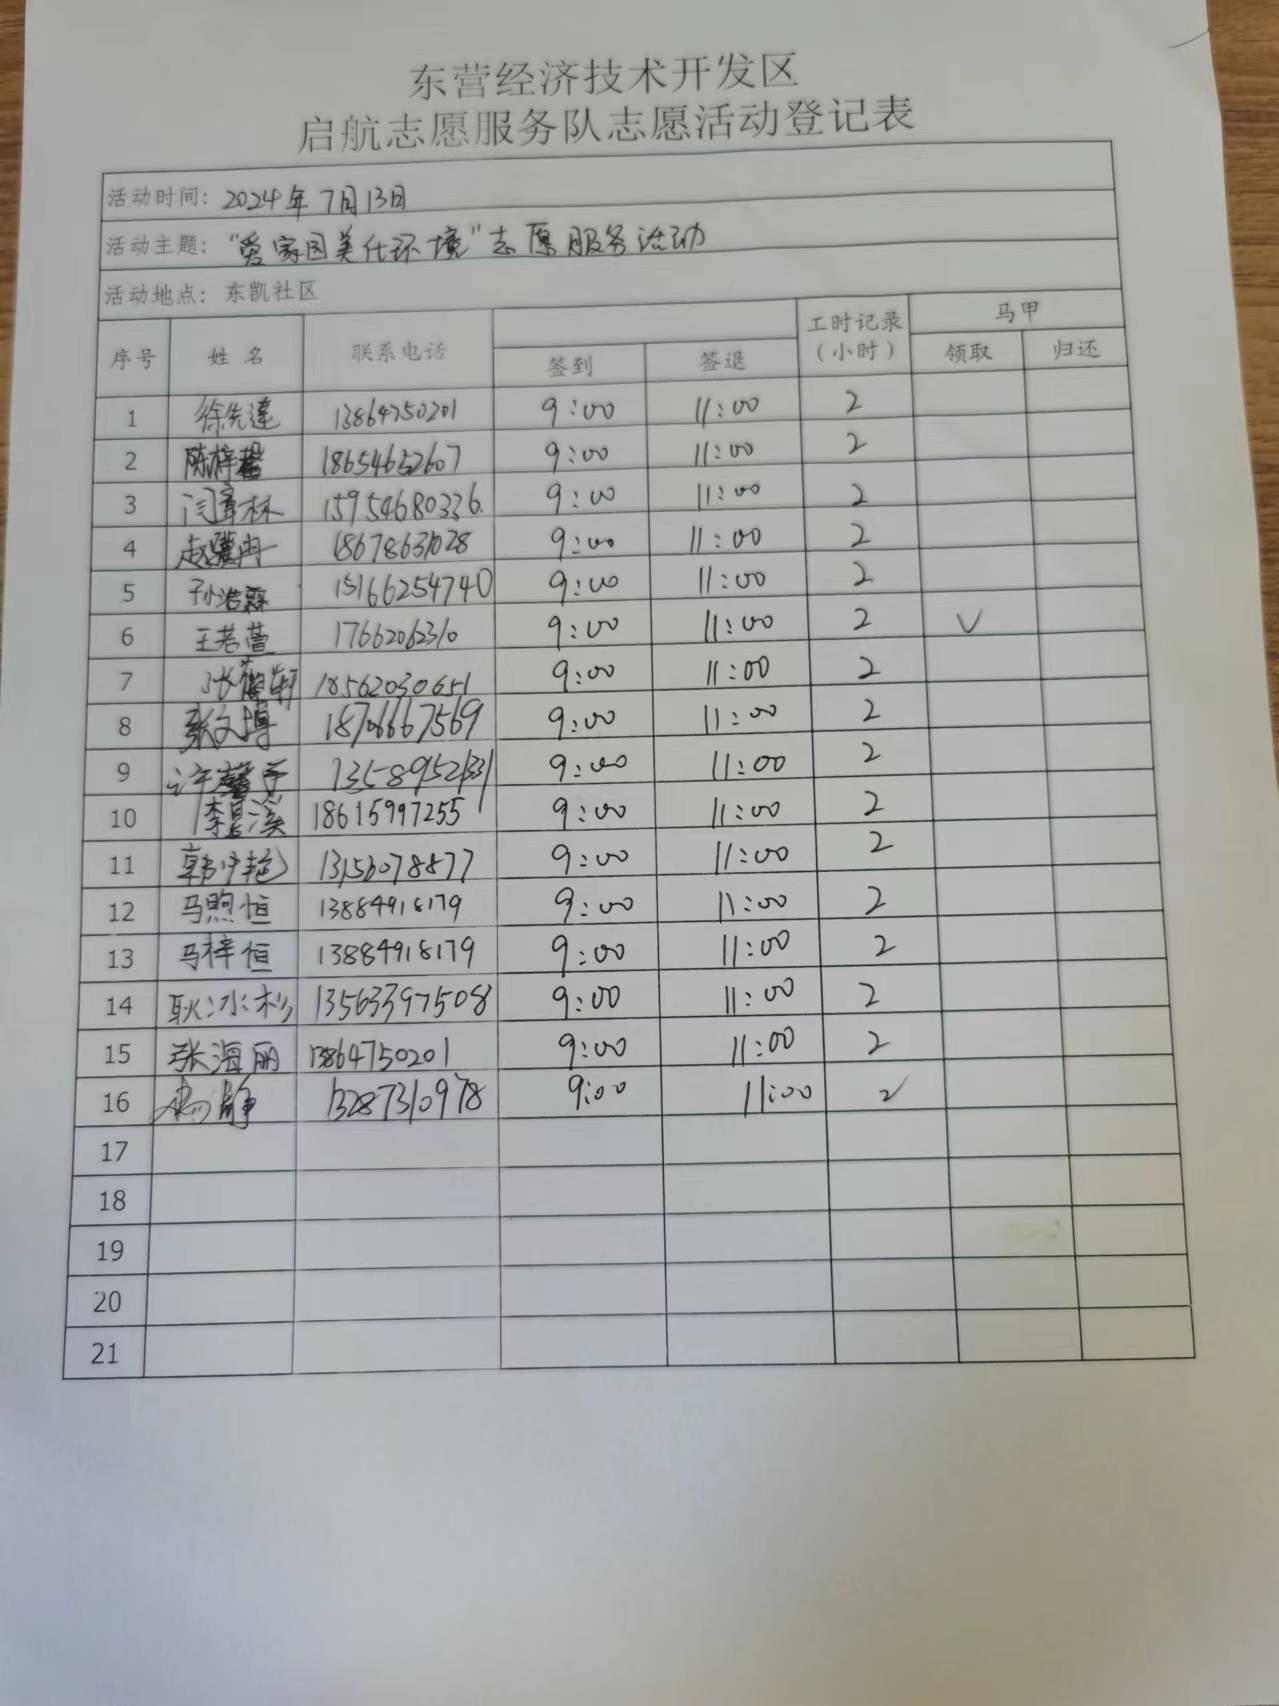 东营经济技术开发区
启航志愿服务队志愿活动登记表
活动时间：2024年7月13日
活动主题：“爱家园美化环境”志愿服务活动
活动地点：东凯社区
序号 姓名 联系电话 签到 签退 工时记录（小时） 马甲 领取 归还
1 徐先达 13864750201 9:00 11:00 2
2 陈梓 18654652607 9:00 11:00 2
3 闫章林 15954680336. 9:00 11:00 2
4 赵冉 18678631028 9:00 11:00 2
5 孙浩霖 15166254740 9:00 11:00 2
6 王若萱 17662062310 9:00 11:00 2 √
7 张 18562030651 9:00 11:00 2
8 张文博 18706667569 9:00 11:00 2
9 许馨予 13589952331 9:00 11:00 2
10 李昌溪 18615997255 9:00 11:00 2
11 13156078877 9:00 11:00 2
12 马煦恒 13884918179 9:00 11:00 2
13 马梓恒 13884918179 9:00 11:00 2
14 耿沐杉 13563397508 9:00 11:00 2
15 张海丽 13864750201 9:00 11:00 2
16 杨静 13287310978 9:00 11:00 2
17
18
19
20
21